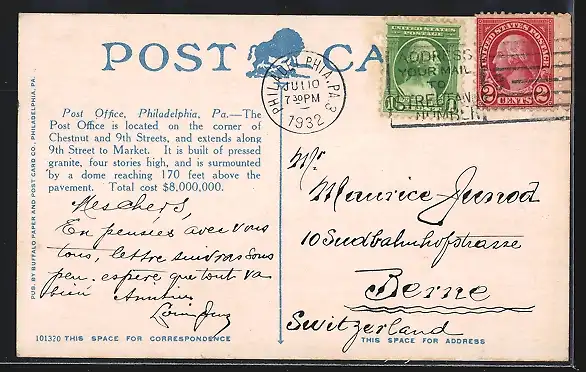 POST CA
UNITED STATES POSTAGE
UNITED STATES POSTAGE
2 CENTS 2
PHILADELPHIA, PA. 3
JUL 10
7 30 PM
1932
ADDRESS
YOUR MAIL
TO
STREET AND
NUMBER
Post Office, Philadelphia, Pa.—The
Post Office is located on the corner of
Chestnut and 9th Streets, and extends along
9th Street to Market. It is built of pressed
granite, four stories high, and is surmounted
by a dome reaching 170 feet above the
pavement. Total cost $8,000,000.
Mes chers,
En pensées avec vous
tous, lettre suivra sous
peu. espère que tout va
bien
Mr
Maurice Junod
10 Sudbahnhofstrasse
Berne
Switzerland
PUB. BY BUFFALO PAPER AND POST CARD CO. PHILADELPHIA, PA.
101320 THIS SPACE FOR CORRESPONDENCE
THIS SPACE FOR ADDRESS